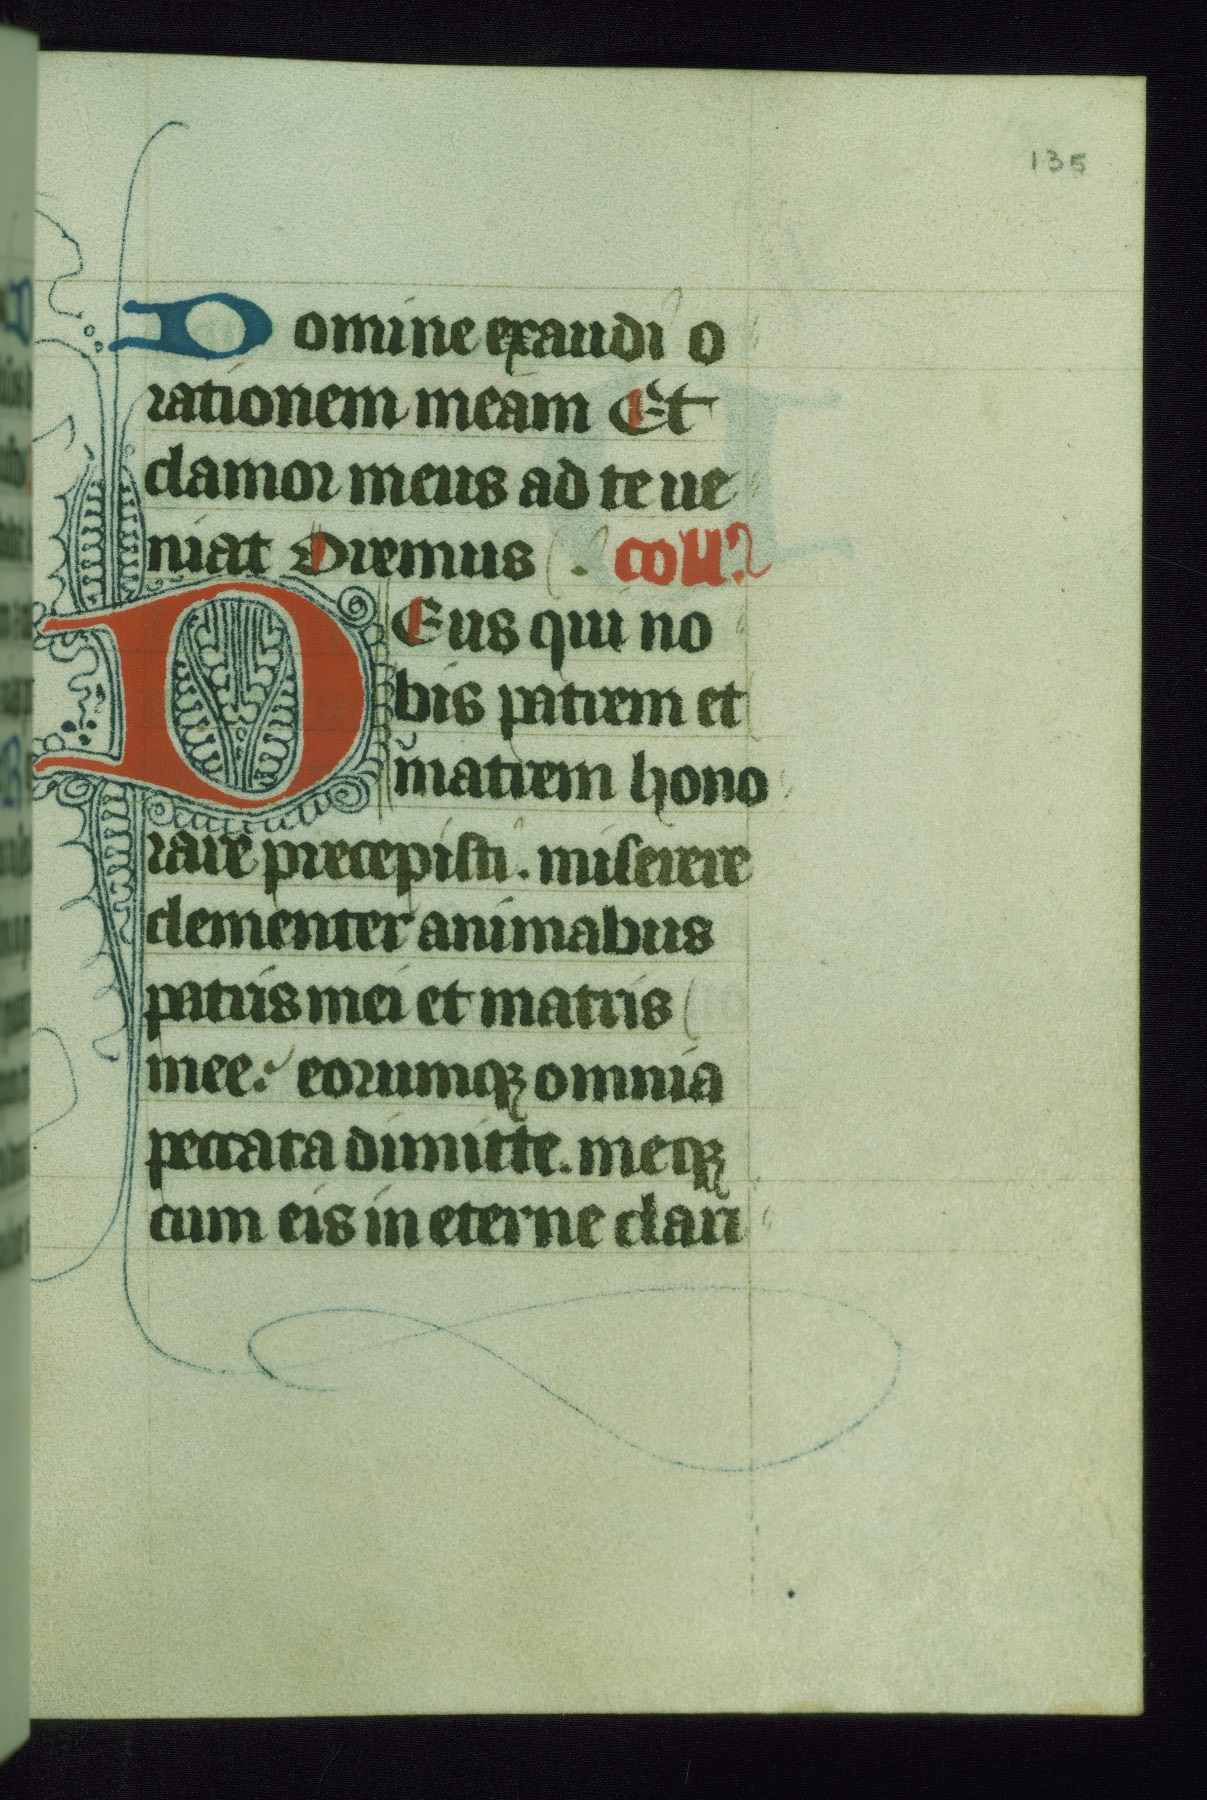 135
Domine exaudi o
rationem meam Et
clamor meus ad te ue
niat Oremus . coll'
DEus qui no
bis patrem et
matrem hono
rare precepisti. miserere
clementer animabus
patris mei et matris
mee. eorumqꝫ omnia
peccata dimitte. meqꝫ
cum eis in eterne clari